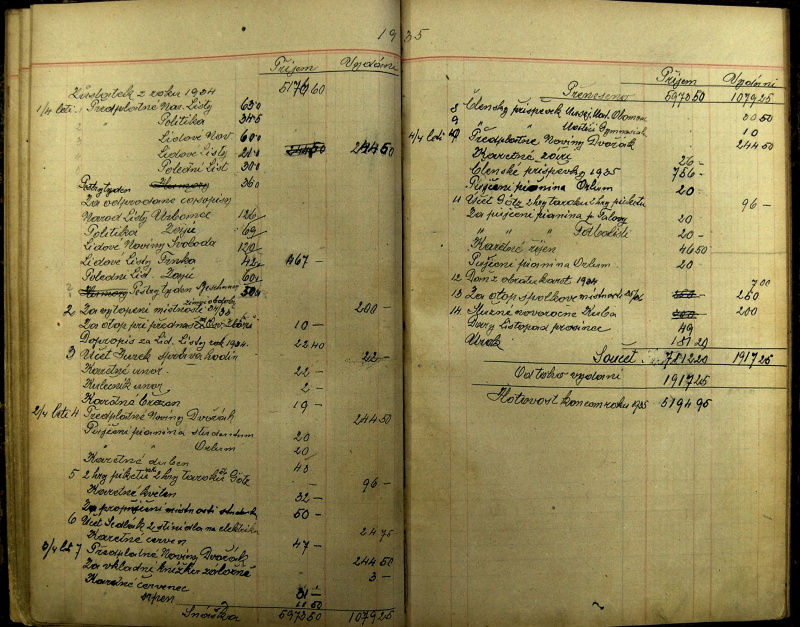 1935
Příjem Vydání
Zůstatek z roku 1934 5176 60
1/4 letí 1 Předplatné Nár. Listy 630
" Politika 345
Lidové Nov. 600
Lidové Listy 244 50
Polední List 300
Pestrý týden 360
Za odprodané časopisy
Národ Listy Urbanec 126
Politika 69
Lidové Noviny Svoboda 120
Lidové Listy Trnka 42 467 —
Polední List 60
Pestrý týden 50
2 Za vytopení místnosti 34/35 200 —
zimní období
Za otop při přednášce 10 —
Dopropis za Lid. Listy rok 1934. 22 40
3 Účet Žurek správa hodin 22 —
Karetné únor 22 —
Kulečník únor 2 —
Karetné březen 19 —
2/4 letí 4 Předplatné Noviny Dvořák 244 50
Půjčení pianina studentům 20
" Orlum 20
Karetné duben 43
5 2 hry piketu 2 hry taroků Götz 96 —
Karetné květen 32 —
Za propůjčení místnosti 50 —
6 Účet Sedlák 2 stínidla na elektriku 24 75
Karetné červen 47 —
3/4 letí 7 Předplatné Noviny Dvořák 244 50
Za vkladní knížku záložně 3 —
Karetné červenec 31 —
srpen 11 50
Snáška 5973 50 1079 25
Příjem Vydání
Přeneseno 5973 50 1079 25
8 Členský příspěvek 30 50
9 " " 10
4/4 letí 10 Předplatné Noviny Dvořák 244 50
Karetné září 26 —
Členské příspěvky 1935 756 —
Půjčení pianina Orlum 20
11 Účet Götz 2 hry taroku 2 hry piketu 96 —
Za půjčení pianina p. 20
" " 20 —
Karetné říjen 46 50
Půjčení pianina Orlum 20
12 Daň z obratu karet 1934 7 00
13 Za otop spolkové místnosti 35/36 250
14 Služné novoročné Kuba 200
Dary Listopad prosinec 49
Úrok 181 20
Součet 7112 20 1917 25
Od toho vydání 1917 25
Hotovost koncem roku 1935 5194 95